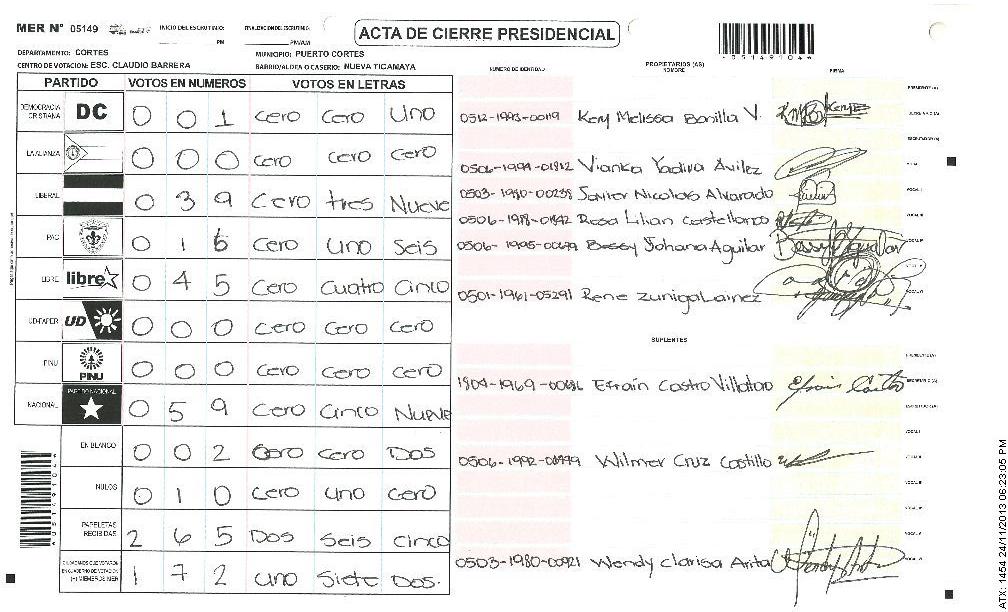 MER N° 05149 INICIO DEL ESCRUTINIO: PM FINALIZACION DEL ESCRUTINIO: PM/AM
ACTA DE CIERRE PRESIDENCIAL
DEPARTAMENTO: CORTES MUNICIPIO: PUERTO CORTES
CENTRO DE VOTACION: ESC. CLAUDIO BARRERA BARRIO/ALDEA O CASERIO: NUEVA TICAMAYA
PARTIDO VOTOS EN NUMEROS VOTOS EN LETRAS
DEMOCRACIA CRISTIANA DC 0 0 1 Cero Cero Uno
LA ALIANZA 0 0 0 Cero Cero Cero
LIBERAL 0 3 9 Cero tres Nueve
PAC 0 1 6 Cero Uno Seis
LIBRE libre 0 4 5 Cero Cuatro Cinco
UD-FAPER UD 0 0 0 Cero Cero Cero
PINU PINU 0 0 0 Cero Cero Cero
NACIONAL PARTIDO NACIONAL 0 5 9 Cero Cinco Nueve
EN BLANCO 0 0 2 Cero Cero Dos
NULOS 0 1 0 Cero Uno Cero
PAPELETAS RECIBIDAS 2 6 5 Dos Seis Cinco
CIUDADANOS QUE VOTARON EN CUADERNO DE VOTACION (+) MIEMBROS MER 1 7 2 Uno Siete Dos.
NUMERO DE IDENTIDAD PROPIETARIOS (AS) NOMBRE FIRMA
PRESIDENTE (A)
0512-1993-00119 Kery Melissa Bonilla V. SECRETARIO (A)
ESCRUTADOR (A)
Vianka Yadira Avilez
0503-1980-00238 Javier Nicolas Alvarado VOCAL I
Rosa Lilian Castellanos
Bessy Johana Aguilar
0501-1961-05291 Rene Zuniga Lainez
SUPLENTES
PRESIDENTE (A)
Efrain Castro Villatoro SECRETARIO (A)
ESCRUTADOR (A)
VOCAL I
Wilmer Cruz Castillo
0503-1980-00921 Wendy Clarisa Arita
ATX: 1454 24/11/2013 06:23:05 PM